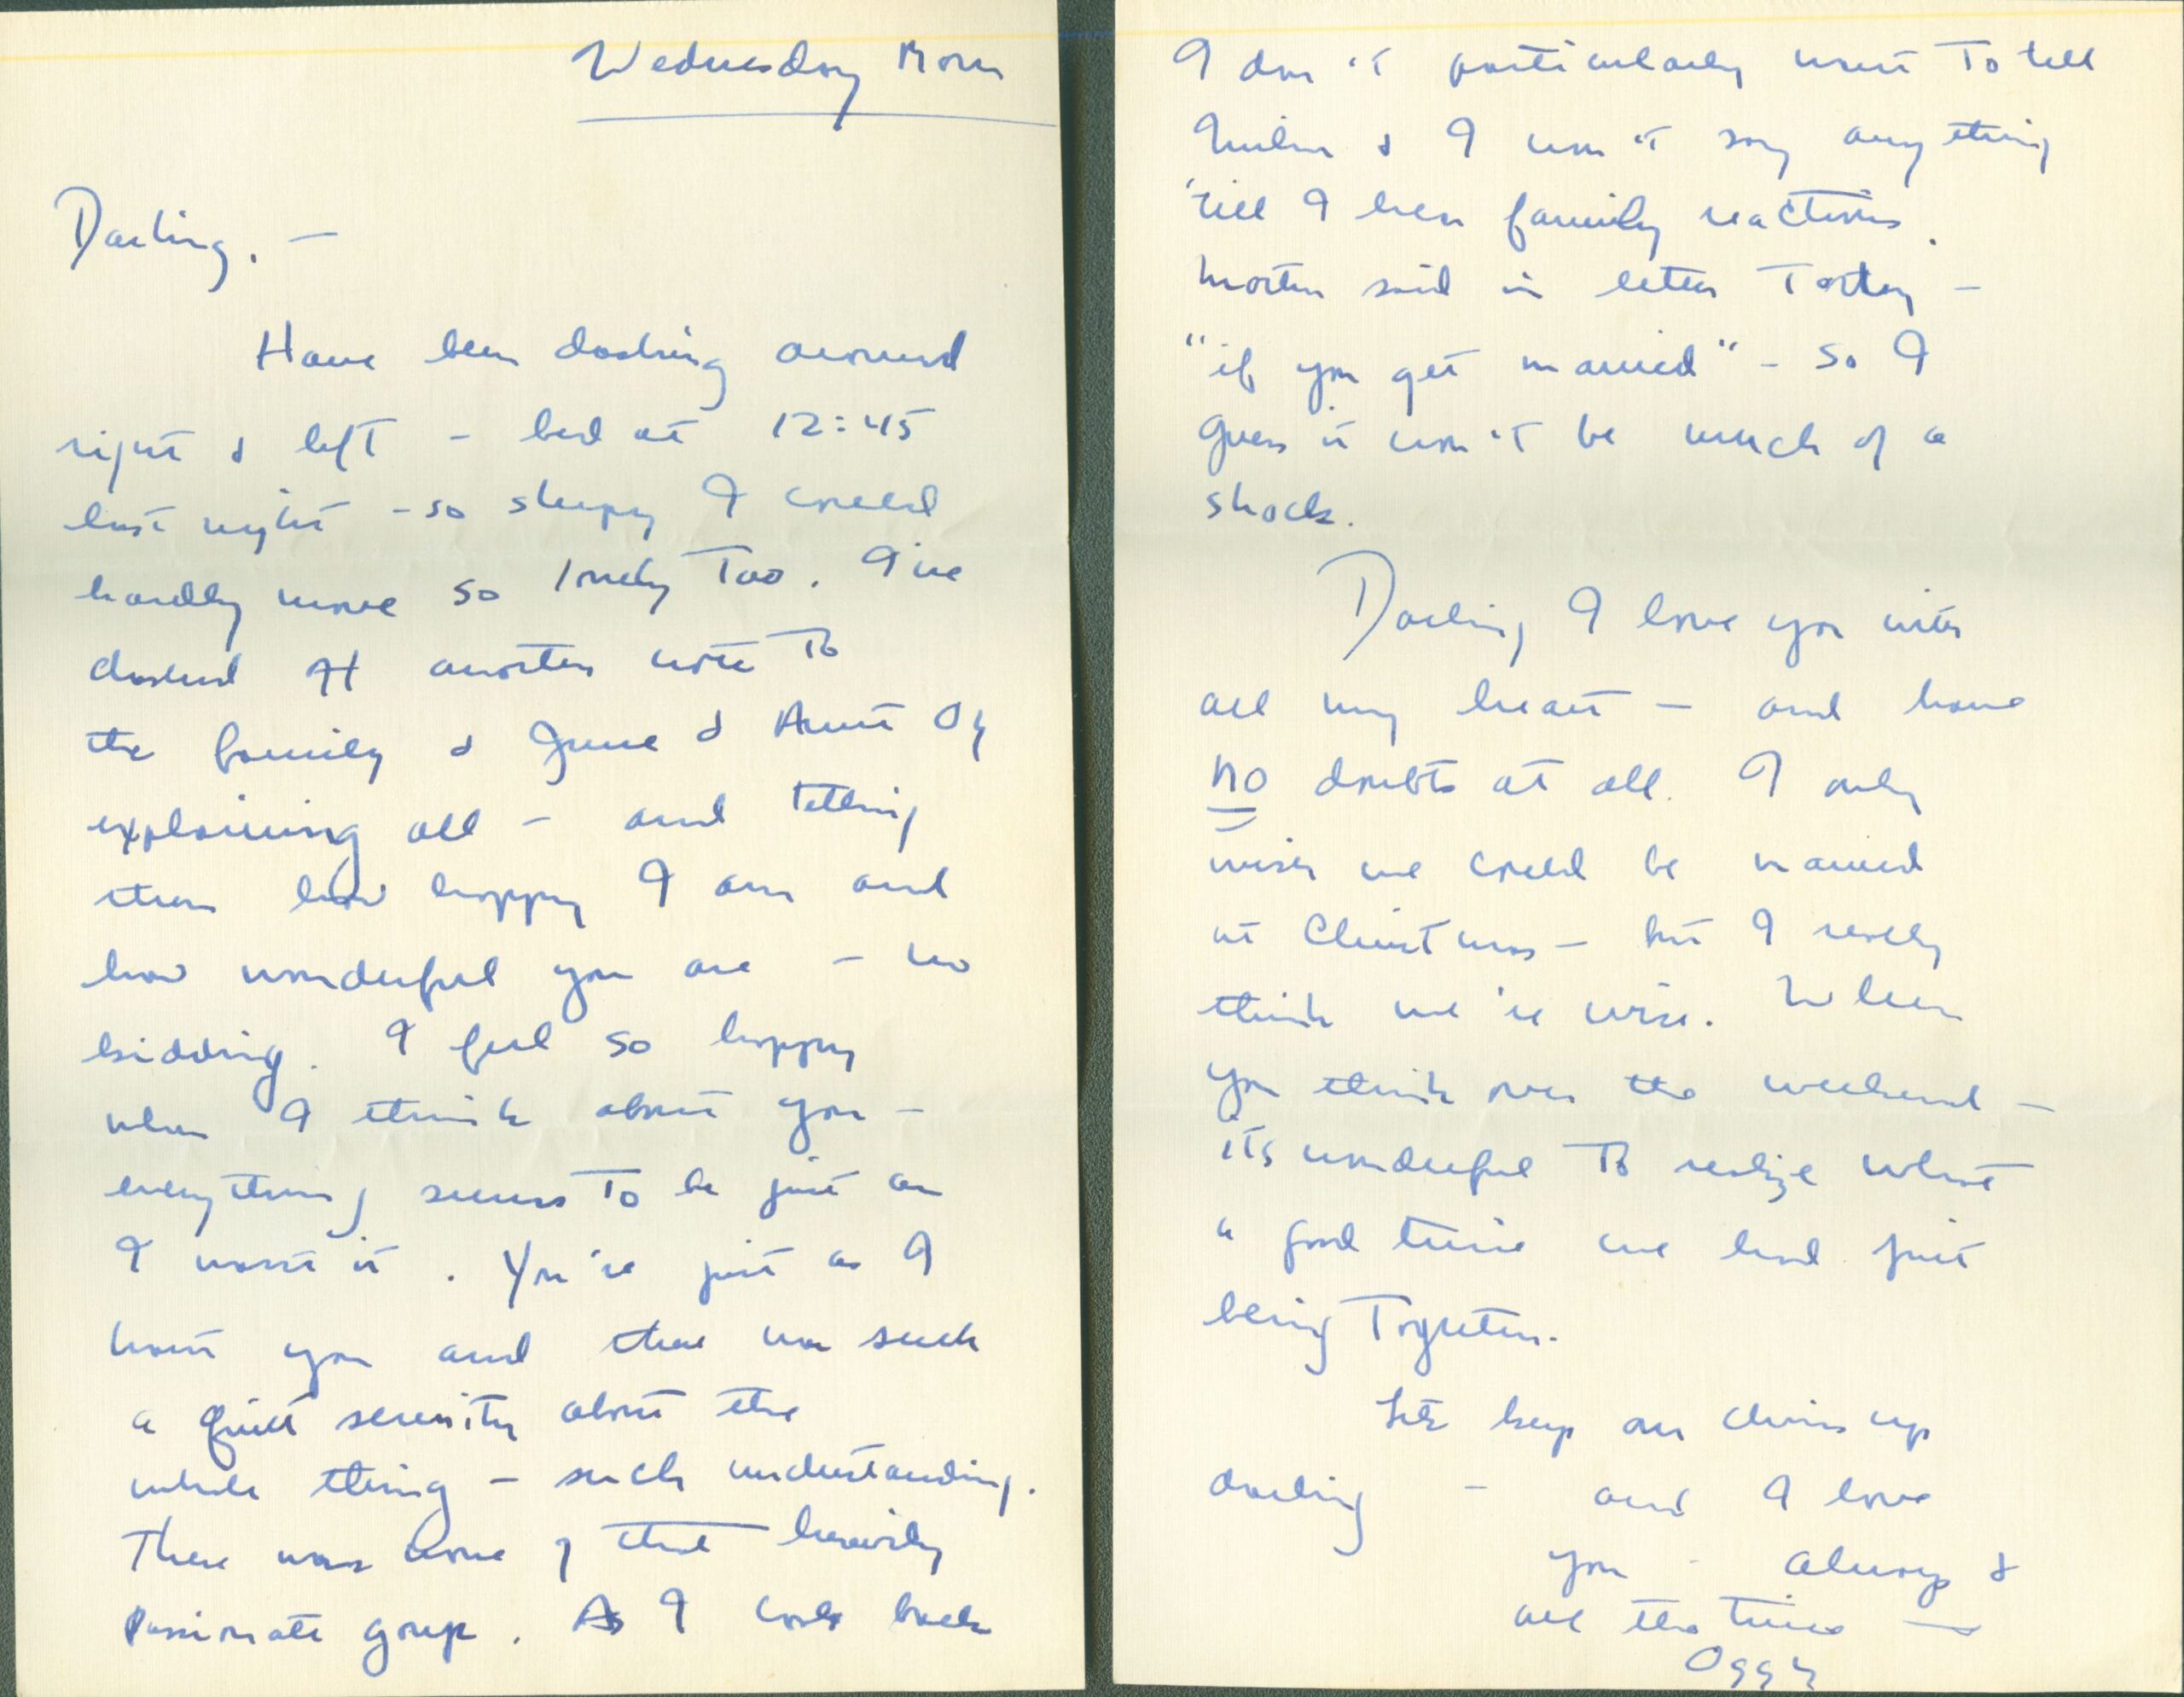 Wednesday Morn
Darling. —
Have been dashing around
right & left - bed at 12:45
last night - so sleepy I could
hardly move so lonely too. I've
dashed off another note to
the family & June & Aunt Og
explaining all - and telling
them how happy I am and
how wonderful you are - no
kidding. I feel so happy
when I think about you -
everything seems to be just as
I want it. You're just as I
want you and there was such
a quiet serenity about the
whole thing - such understanding.
There was none of that heavily
passionate goup. As I look back
I don't particularly want to tell
& I won't say anything
'till I hear family reactions.
Mother said in letter Today -
"if you get married" - so I
guess it won't be much of a
shock.
Darling I love you with
all my heart - and have
no doubts at all. I only
wish we could be married
at Christmas - but I really
think we're wise. When
you think over the weekend -
its wonderful to realize what
a good time we had just
being Together.
Let's keep our chins up
darling - and I love
you - always &
all the time —
Oggy